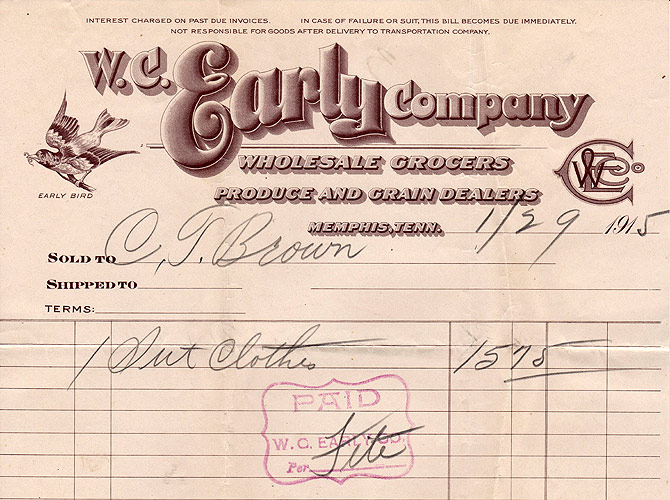 INTEREST CHARGED ON PAST DUE INVOICES. IN CASE OF FAILURE OR SUIT, THIS BILL BECOMES DUE IMMEDIATELY.
NOT RESPONSIBLE FOR GOODS AFTER DELIVERY TO TRANSPORTATION COMPANY.
W.C. Early Company
WHOLESALE GROCERS
PRODUCE AND GRAIN DEALERS
EARLY BIRD
MEMPHIS, TENN. 1/29 1915
SOLD TO C. T. Brown
SHIPPED TO
TERMS:
1 Suit Clothes 15 75
PAID
W. C. EARLY CO.
Per Fite